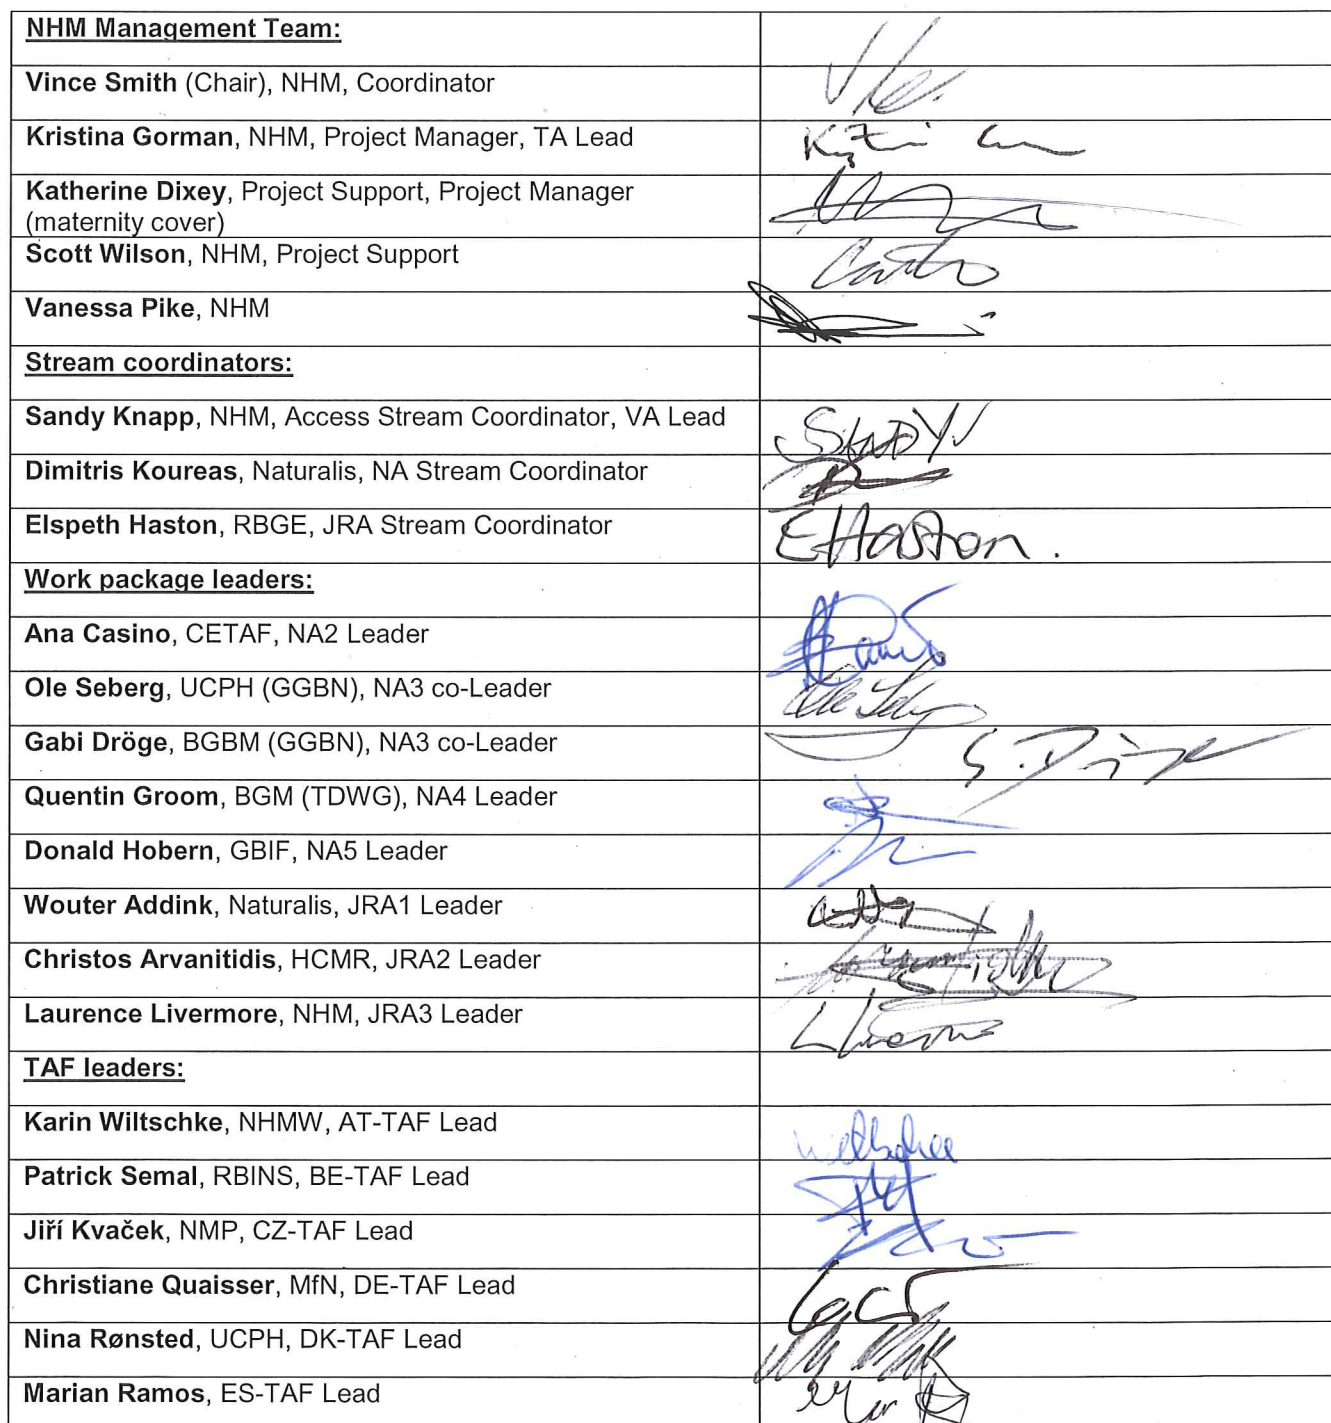 NHM Management Team:
Vince Smith (Chair), NHM, Coordinator
Kristina Gorman, NHM, Project Manager, TA Lead
Katherine Dixey, Project Support, Project Manager
(maternity cover)
Scott Wilson, NHM, Project Support
Vanessa Pike, NHM
Stream coordinators:
Sandy Knapp, NHM, Access Stream Coordinator, VA Lead
SANDY
Dimitris Koureas, Naturalis, NA Stream Coordinator
Elspeth Haston, RBGE, JRA Stream Coordinator
EHaston.
Work package leaders:
Ana Casino, CETAF, NA2 Leader
Ole Seberg, UCPH (GGBN), NA3 co-Leader
Gabi Dröge, BGBM (GGBN), NA3 co-Leader
Quentin Groom, BGM (TDWG), NA4 Leader
Donald Hobern, GBIF, NA5 Leader
Wouter Addink, Naturalis, JRA1 Leader
Christos Arvanitidis, HCMR, JRA2 Leader
Laurence Livermore, NHM, JRA3 Leader
TAF leaders:
Karin Wiltschke, NHMW, AT-TAF Lead
Patrick Semal, RBINS, BE-TAF Lead
Jiří Kvaček, NMP, CZ-TAF Lead
Christiane Quaisser, MfN, DE-TAF Lead
Nina Rønsted, UCPH, DK-TAF Lead
Marian Ramos, ES-TAF Lead